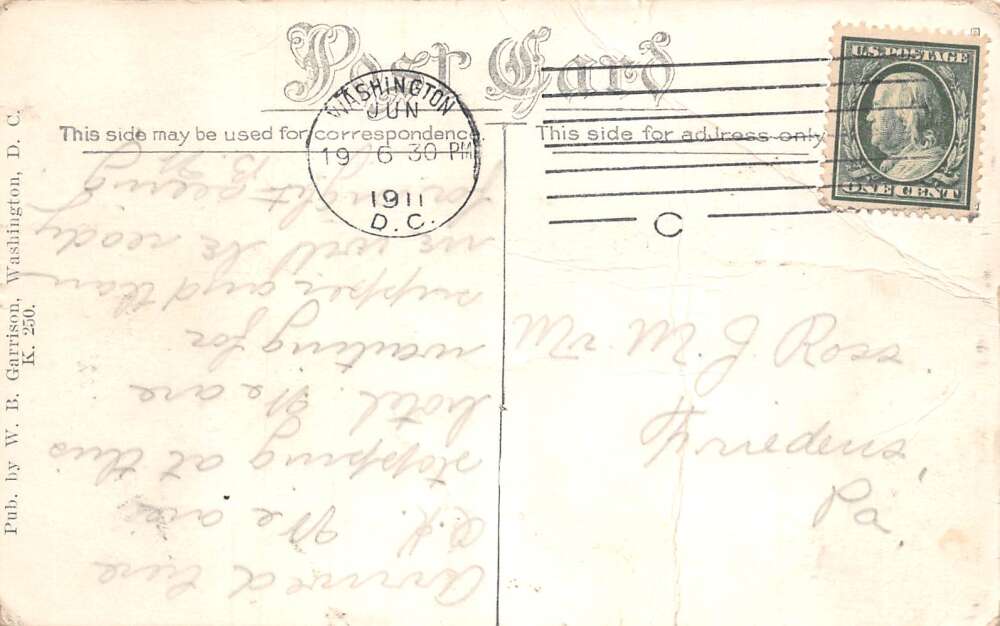 Post Card
This side may be used for correspondence
This side for address only
WASHINGTON
JUN
19 6 30 PM
1911
D. C.
C
U.S. POSTAGE
ONE CENT
Arrived here
O.K. We are
stopping at this
hotel. We are
waiting for
supper and then
we will be ready
for sight seeing
J. Ross
Friedens
Pa.
Pub. by W. B. Garrison, Washington, D. C.
K. 250.